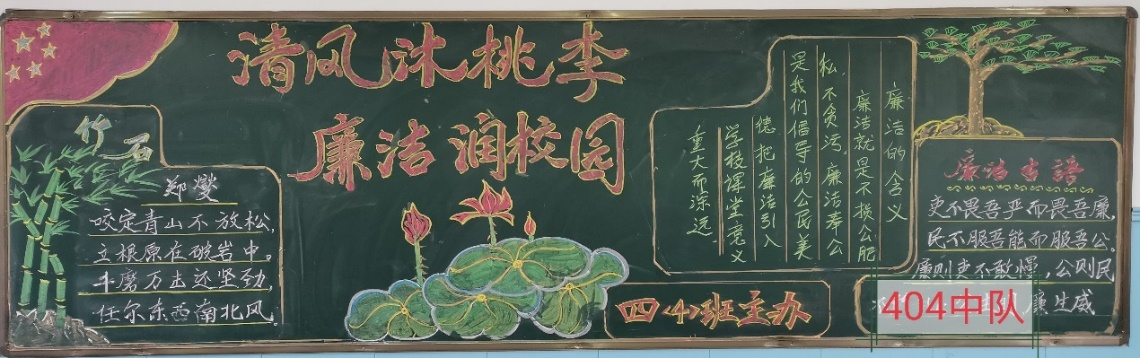 清风沐桃李
廉洁润校园
竹石
郑燮
咬定青山不放松,
立根原在破岩中。
千磨万击还坚劲,
任尔东西南北风。
廉洁的含义
廉洁就是不损公肥
私,不贪污,廉洁奉公
是我们倡导的公民美
德,把廉洁引入
学校课堂意义
重大而深远。
四〈4〉班主办
廉洁古语
吏不畏吾严而畏吾廉,
民不服吾能而服吾公。
廉则吏不敢慢,公则民
廉生威
404中队